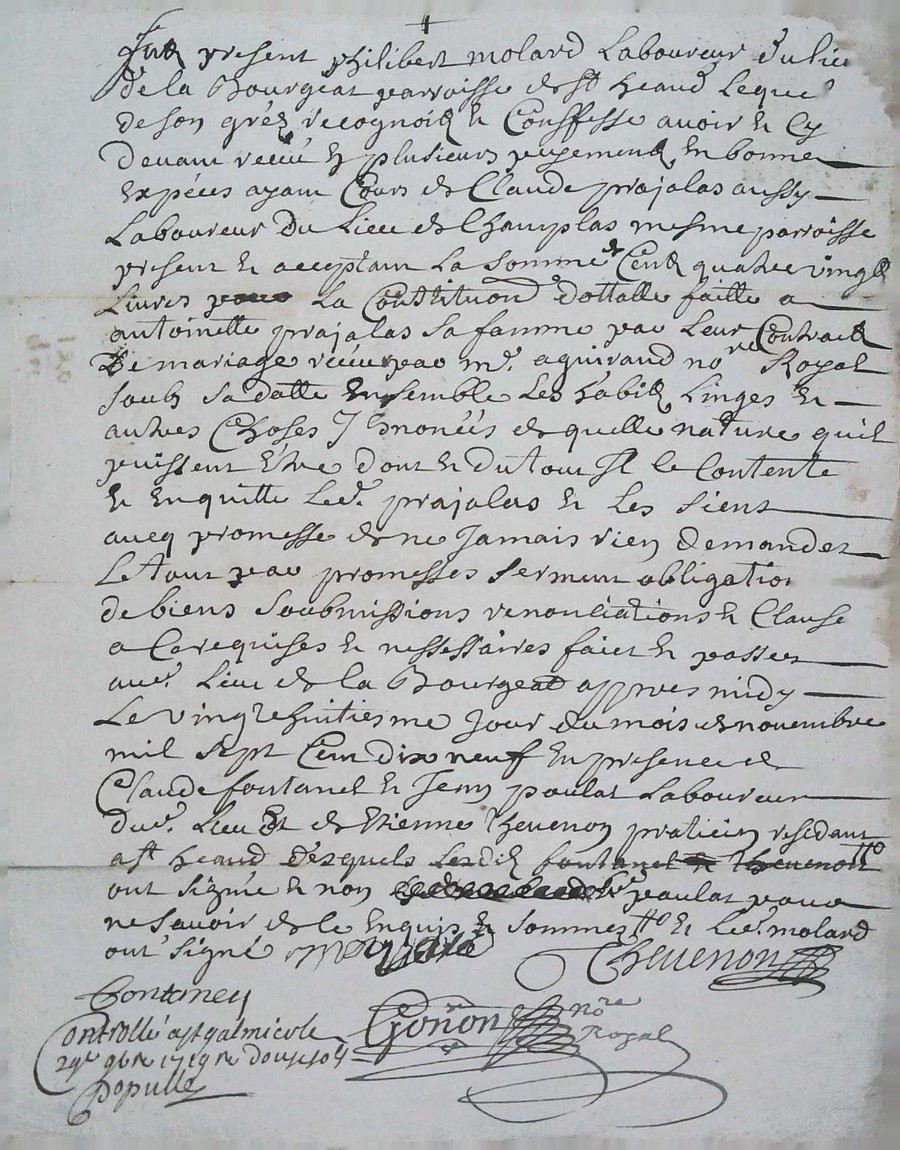 +
Fut present philibert molard Laboureur du lieu
de la Bourgeat parroisse de st heand Lequel
de son gréz recognoit et Conffesse avoir et Cy
devant receu en plusieurs payements en bonne
expéces ayant Cours de Claude prajalas aussy
Laboureur du Lieu de Champlas mesme parroisse
present et acceptant La Somme de Cent quatre vingts
Livres La Constitution dottalle faitte a
antoinette prajalas sa famme par Leur Contract
de mariage receu par me. aguiraud nore Royal
soubz sa datte Ensemble Les habits Linges et
autres Choses y Enoncées de quelle nature quil
puissent Etre dont et du tout Il se Contente
et Enquitte Led. prajalas et Les siens
avec promesse de ne Jamais rien demander
Le tout par promesses serment obligation
de biens soubmissions renonciations et Clause
a Ca requises et nessessaires faict et passez
aud. Lieu de la Bourgeat appres midy
Le vingt huitiesme Jour du mois de novembre
mil sept Cent dix neuf En presence de
Claude fontanel et Jean poulat Laboureur
dud. Lieu Et de Etienne Thevenon praticien residant
a st heand desquels Lesdits fontanel et Thevenon
ont signé et non led. poulat pour
ne savoir de ce Enquis et Sommez et Led. molard
ont signé molard
Thevenon
fontaney
Controllé a st galmier le
29e 9bre 1719 re douse sols
populle
Gonon nore
Royal